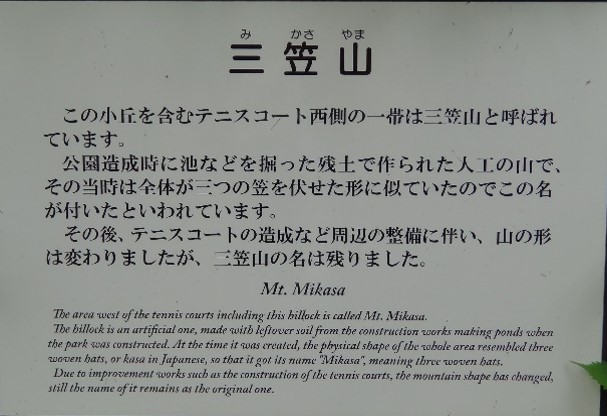 み かさ やま
三笠山
この小丘を含むテニスコート西側の一帯は三笠山と呼ばれ
ています。
公園造成時に池などを掘った残土で作られた人工の山で、
その当時は全体が三つの笠を伏せた形に似ていたのでこの名
が付いたといわれています。
その後、テニスコートの造成など周辺の整備に伴い、山の形
は変わりましたが、三笠山の名は残りました。
Mt. Mikasa
The area west of the tennis courts including this hillock is called Mt. Mikasa.
The hillock is an artificial one, made with leftover soil from the construction works making ponds when
the park was constructed. At the time it was created, the physical shape of the whole area resembled three
woven hats, or kasa in Japanese, so that it got its name "Mikasa", meaning three woven hats.
Due to improvement works such as the construction of the tennis courts, the mountain shape has changed,
still the name of it remains as the original one.